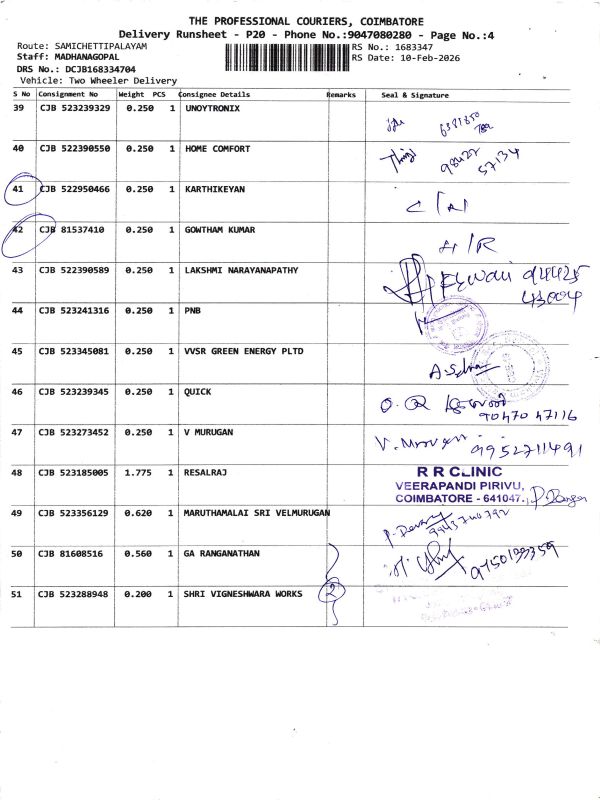 THE PROFESSIONAL COURIERS, COIMBATORE
Delivery Runsheet - P20 - Phone No.:9047080280 - Page No.:4
Route: SAMICHETTIPALAYAM
RS No.: 1683347
Staff: MADHANAGOPAL
RS Date: 10-Feb-2026
DRS No.: DCJB168334704
Vehicle: Two Wheeler Delivery
S No Consignment No Weight PCS Consignee Details Remarks Seal & Signature
39 CJB 523239329 0.250 1 UNOYTRONIX
40 CJB 522390550 0.250 1 HOME COMFORT 98427
57134
41 CJB 522950466 0.250 1 KARTHIKEYAN
42 CJB 81537410 0.250 1 GOWTHAM KUMAR
43 CJB 522390589 0.250 1 LAKSHMI NARAYANAPATHY 94425
43004
44 CJB 523241316 0.250 1 PNB
45 CJB 523345081 0.250 1 VVSR GREEN ENERGY PLTD
46 CJB 523239345 0.250 1 QUICK
90470 47116
47 CJB 523273452 0.250 1 V MURUGAN V. Murugan 9952711491
48 CJB 523185005 1.775 1 RESALRAJ R R CLINIC
VEERAPANDI PIRIVU,
COIMBATORE - 641047.
49 CJB 523356129 0.620 1 MARUTHAMALAI SRI VELMURUGAN
50 CJB 81608516 0.560 1 GA RANGANATHAN
51 CJB 523288948 0.200 1 SHRI VIGNESHWARA WORKS 2